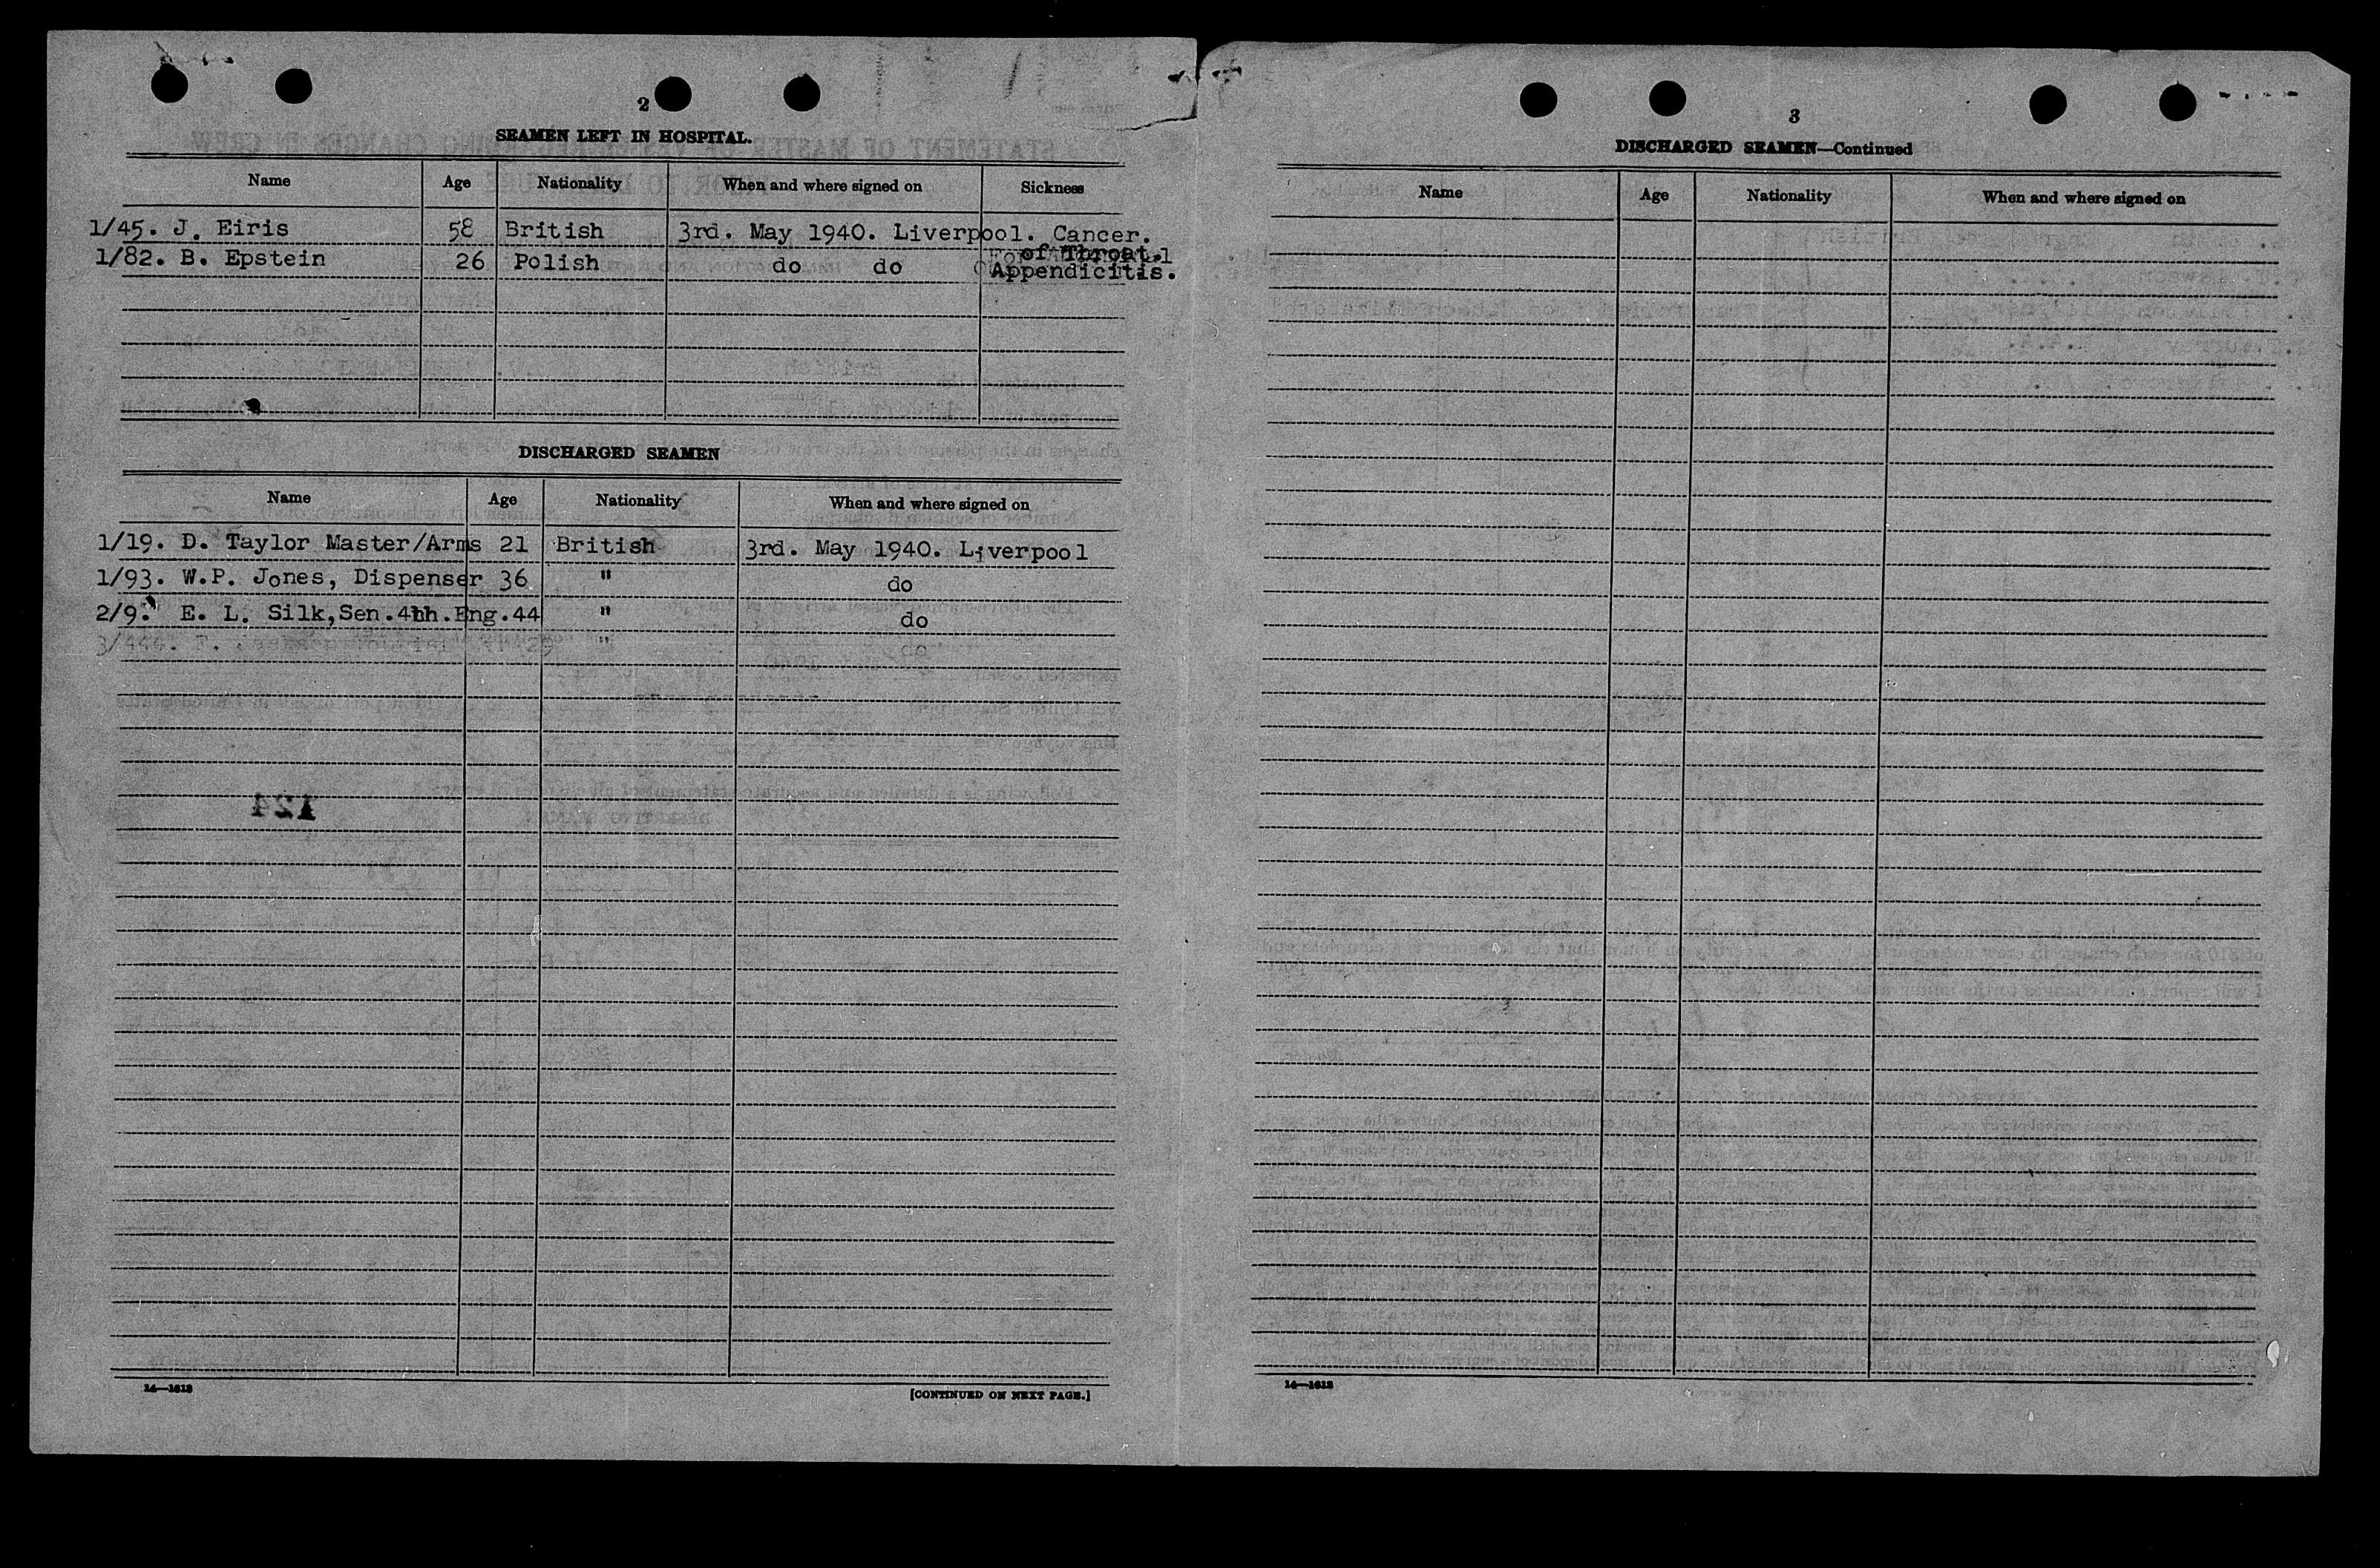 2
SEAMEN LEFT IN HOSPITAL.
Name Age Nationality When and where signed on Sickness
1/45. J. Eiris 58 British 3rd. May 1940. Liverpool. Cancer.
of Throat.
1/82. B. Epstein 26 Polish do do Appendicitis.
DISCHARGED SEAMEN
Name Age Nationality When and where signed on
1/19. D. Taylor Master/Arms 21 British 3rd. May 1940. Liverpool
1/93. W.P. Jones, Dispenser 36 " do
2/9. E. L. Silk, Sen.4th.Eng. 44 " do
3/444. F. 29 " do
124
14—1613
[CONTINUED ON NEXT PAGE.]
3
DISCHARGED SEAMEN—Continued
Name Age Nationality When and where signed on
14—1613